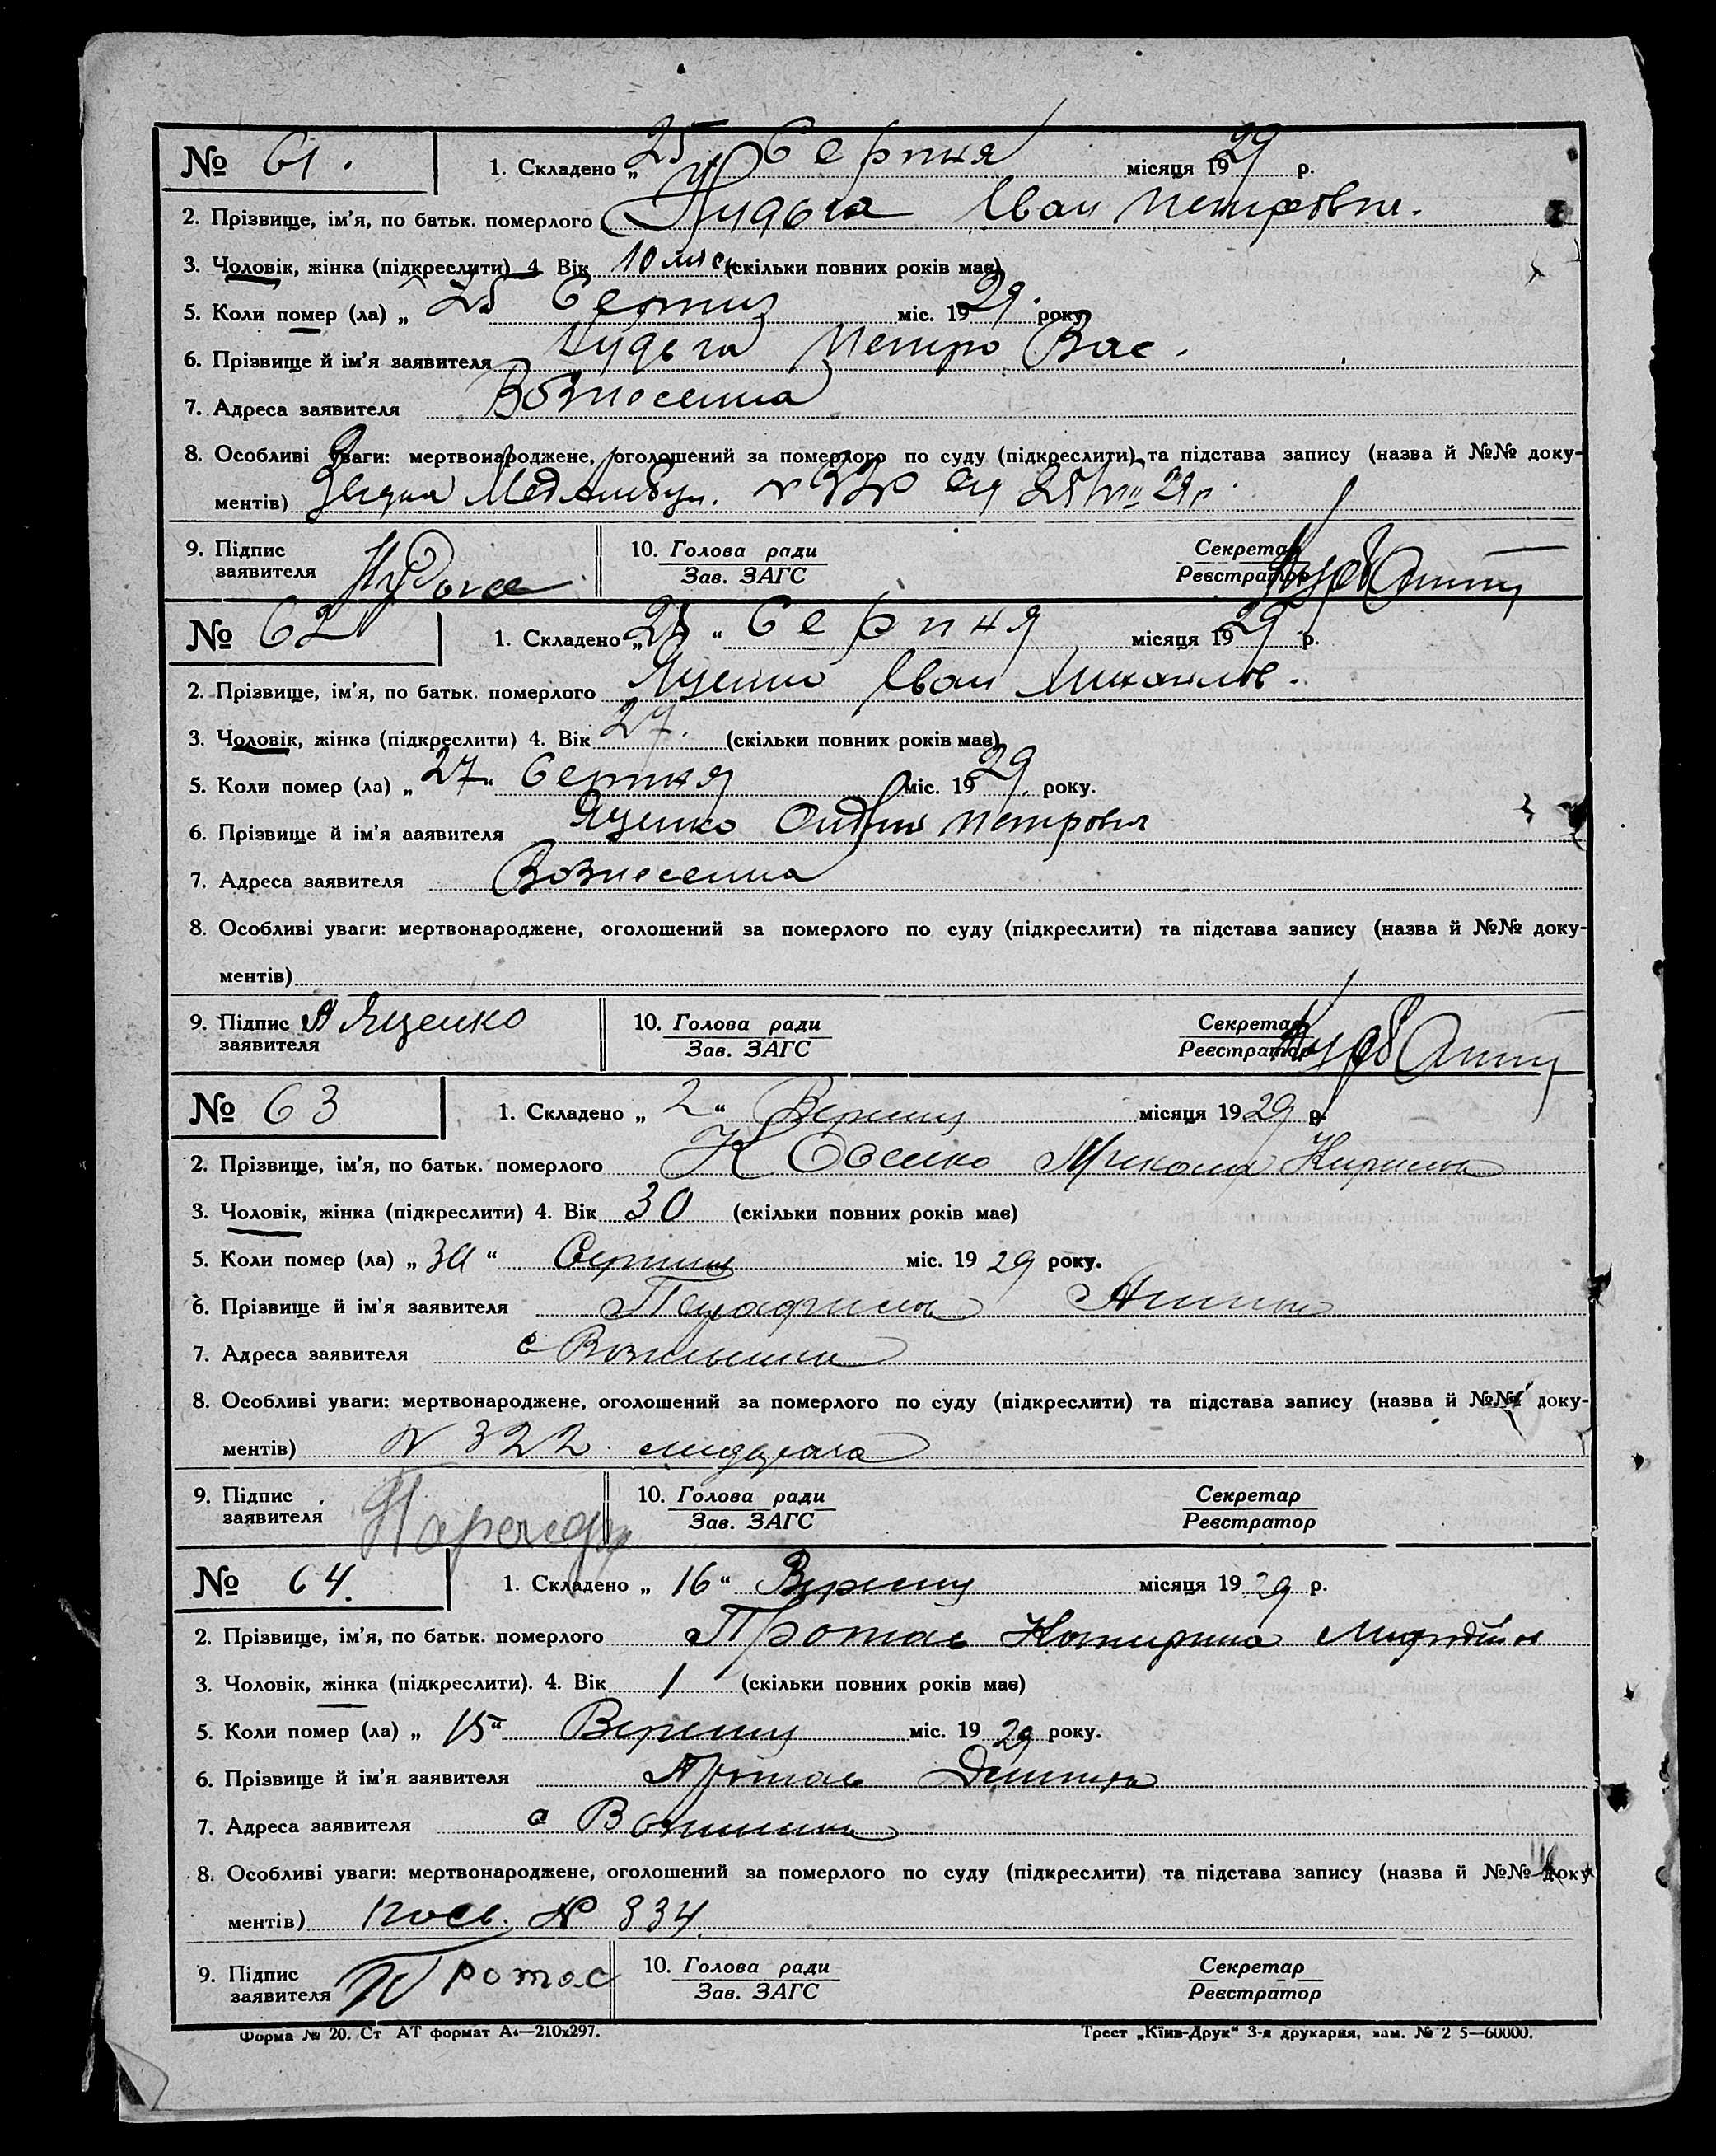 № 61. 1. Складено „25 Серпня місяця 1929 р.
2. Прізвище, ім'я, по батьк. померлого Нудьга Іван Петрович.
3. Чоловік, жінка (підкреслити) 4. Вік 10 міс. (скільки повних років має)
5. Коли помер (ла) „25 Серпня міс. 1929. року
6. Прізвище й ім'я заявителя Нудьга Петро Вас.
7. Адреса заявителя Вознесенка
8. Особливі уваги: мертвонароджене, оголошений за померлого по суду (підкреслити) та підстава запису (назва й №№ доку-
ментів) № 320 25/VIII 29 р.
9. Підпис заявителя Нудьга 10. Голова ради Зав. ЗАГС Секретар Реєстратор
№ 62 1. Складено „ “ Серпня місяця 1929 р.
2. Прізвище, ім'я, по батьк. померлого Яценко Іван Михайлов.
3. Чоловік, жінка (підкреслити) 4. Вік 27. (скільки повних років має)
5. Коли помер (ла) „27“ Серпня міс. 1929. року.
6. Прізвище й ім'я ааявителя Яценко Петрович
7. Адреса заявителя Вознесенка
8. Особливі уваги: мертвонароджене, оголошений за померлого по суду (підкреслити) та підстава запису (назва й №№ доку-
ментів)
9. Підпис заявителя А Яценко 10. Голова ради Зав. ЗАГС Секретар Реєстратор
№ 63 1. Складено „2“ Вересня місяця 1929 р.
2. Прізвище, ім'я, по батьк. померлого Микола Кирилов
3. Чоловік, жінка (підкреслити) 4. Вік 30 (скільки повних років має)
5. Коли помер (ла) „30“ Серпня міс. 1929 року.
6. Прізвище й ім'я заявителя
7. Адреса заявителя с Вознесенка
8. Особливі уваги: мертвонароджене, оголошений за померлого по суду (підкреслити) та підстава запису (назва й №№ доку-
ментів) № 322
9. Підпис заявителя 10. Голова ради Зав. ЗАГС Секретар Реєстратор
№ 64. 1. Складено „16“ Вересня місяця 1929 р.
2. Прізвище, ім'я, по батьк. померлого Протас Катерина
3. Чоловік, жінка (підкреслити). 4. Вік 1 (скільки повних років має)
5. Коли помер (ла) „15“ Вересня міс. 1929 року.
6. Прізвище й ім'я заявителя Протас
7. Адреса заявителя с Вознесенка
8. Особливі уваги: мертвонароджене, оголошений за померлого по суду (підкреслити) та підстава запису (назва й №№ доку
ментів) посв. № 334.
9. Підпис заявителя Протас 10. Голова ради Зав. ЗАГС Секретар Реєстратор
Форма № 20. Ст АТ формат А₄—210х297. Трест „Київ-Друк“ 3-я друкарня, зам. № 2 5—60000.